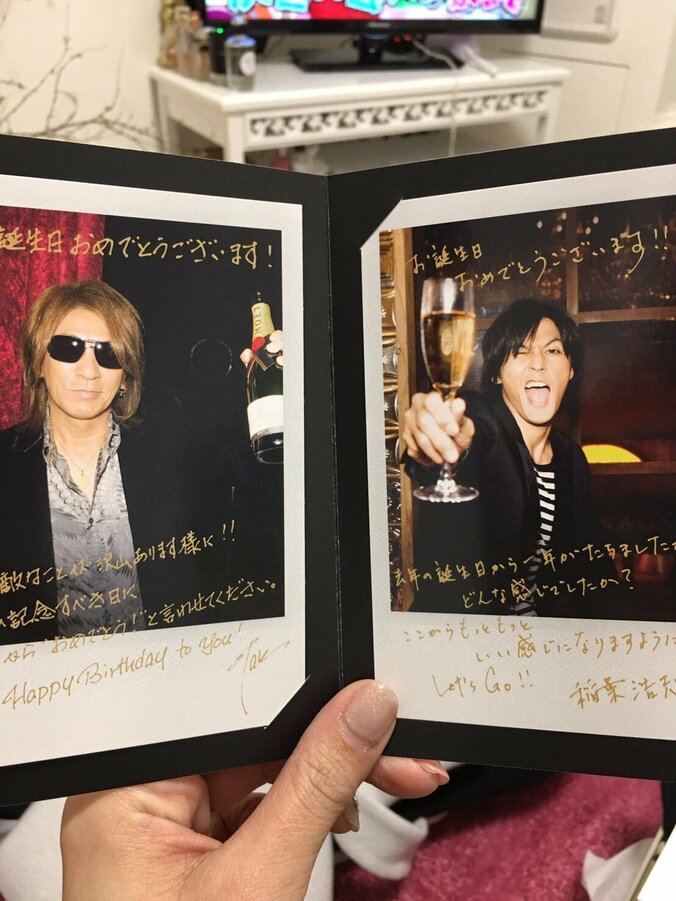 誕生日おめでとうございます!
MOET
敵なことが沢山あります様に!!
記念すべき日に
から“おめでとう!”と言わせてください。
Happy Birthday to You!
Tak
お誕生日
おめでとうございます!!
去年の誕生日から一年がたちました
どんな感じでしたか?
ここからもっともっと
いい感じになりますように
Let's Go!!
稲葉浩志